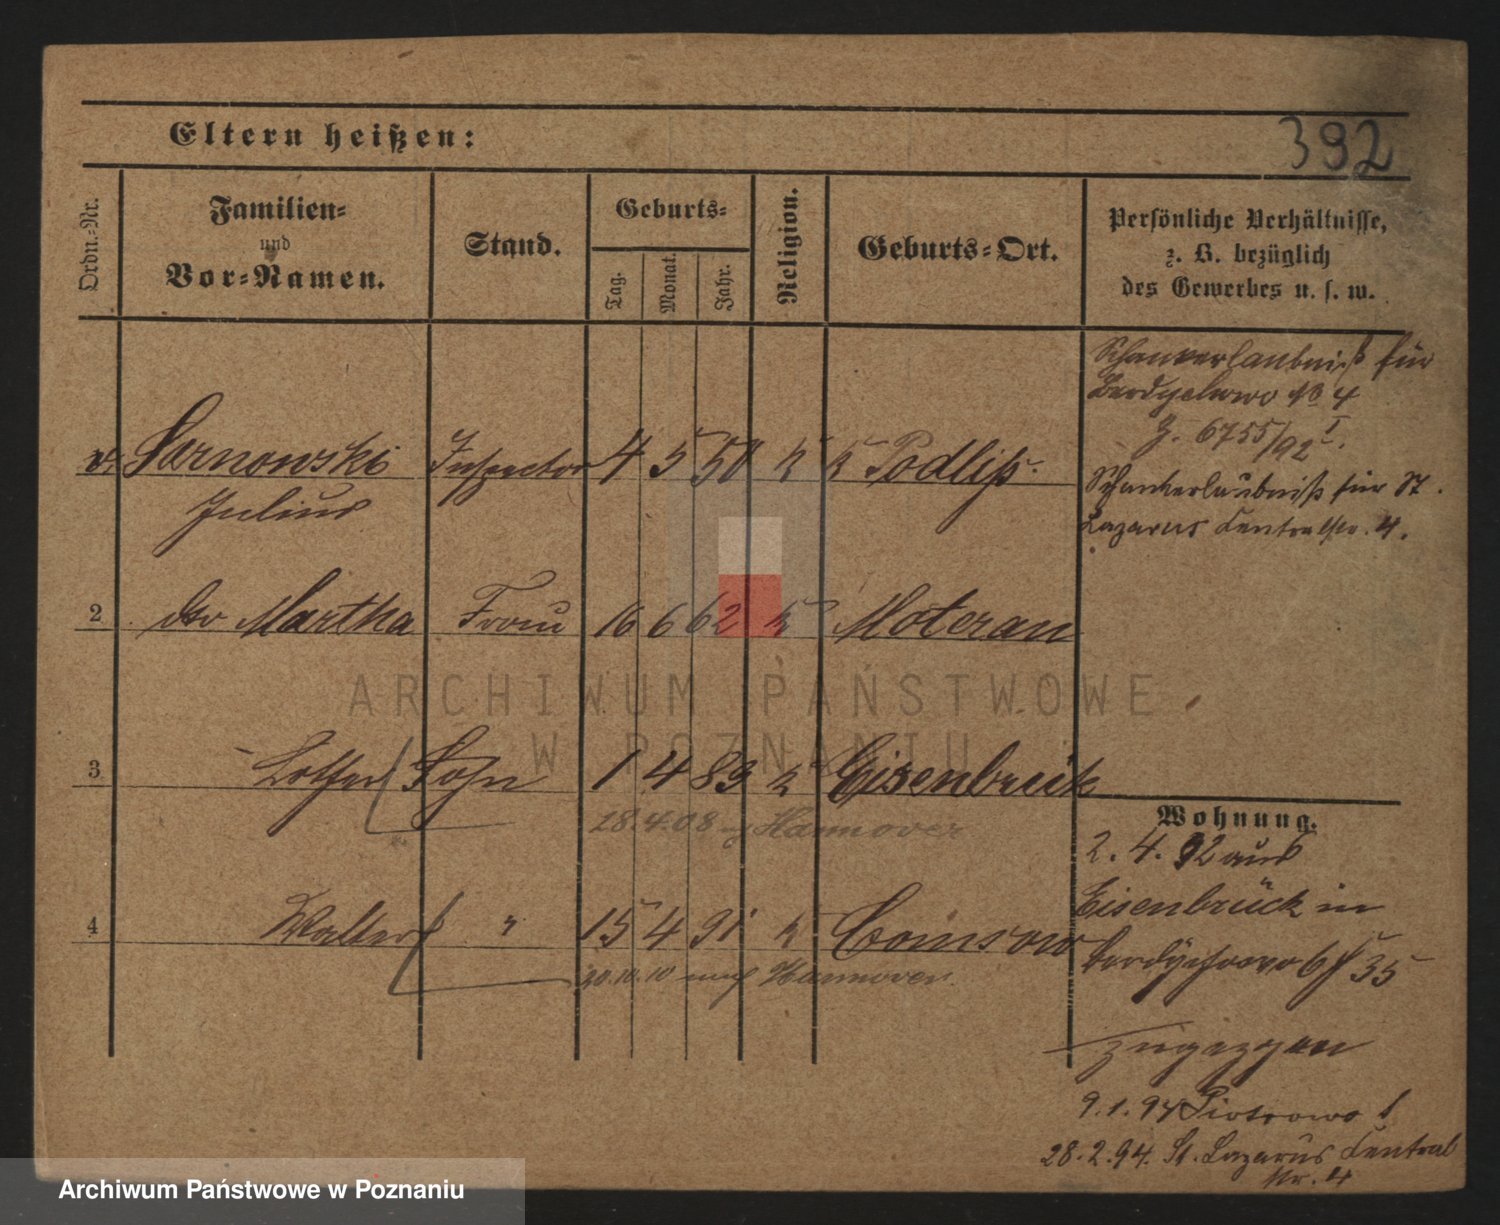 392
Eltern heißen:
Ordn.-Nr.
Familien-
und
Vor-Namen.
Stand.
Geburts-
Tag.
Monat.
Jahr.
Religion.
Geburts-Ort.
Persönliche Verhältnisse,
z. B. bezüglich
des Gewerbes u. s. w.
Schankerlaubniß für
Berdychowo No 4
J. 6755/92 I.
v. Sarnowski Inspector 4 5 50 k Podliß
Julius
Schankerlaubniß für St.
Lazarus Centralstr. 4.
2 dto Martha Frau 16 6 62 k Moteran
ARCHIWUM PAŃSTWOWE
W POZNANIU
3 Lothar Sohn 1 4 89 k Eisenbrück
28.4.08 Hannover
Wohnung.
2. 4. 92 aus
Eisenbrück in
4 Walter " 15 4 91 k Coinsow
Berdychowo 35
20.10.10 nach Hannover.
zugezogen
9.1.94 Piotrowo 1
28.2.94. St. Lazarus Central
str. 4
Archiwum Państwowe w Poznaniu